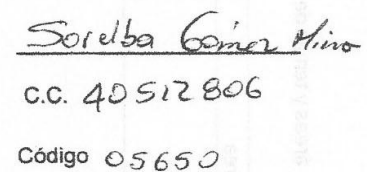 Sorelba Gómez Mino
C.C. 40512806
Código 05650